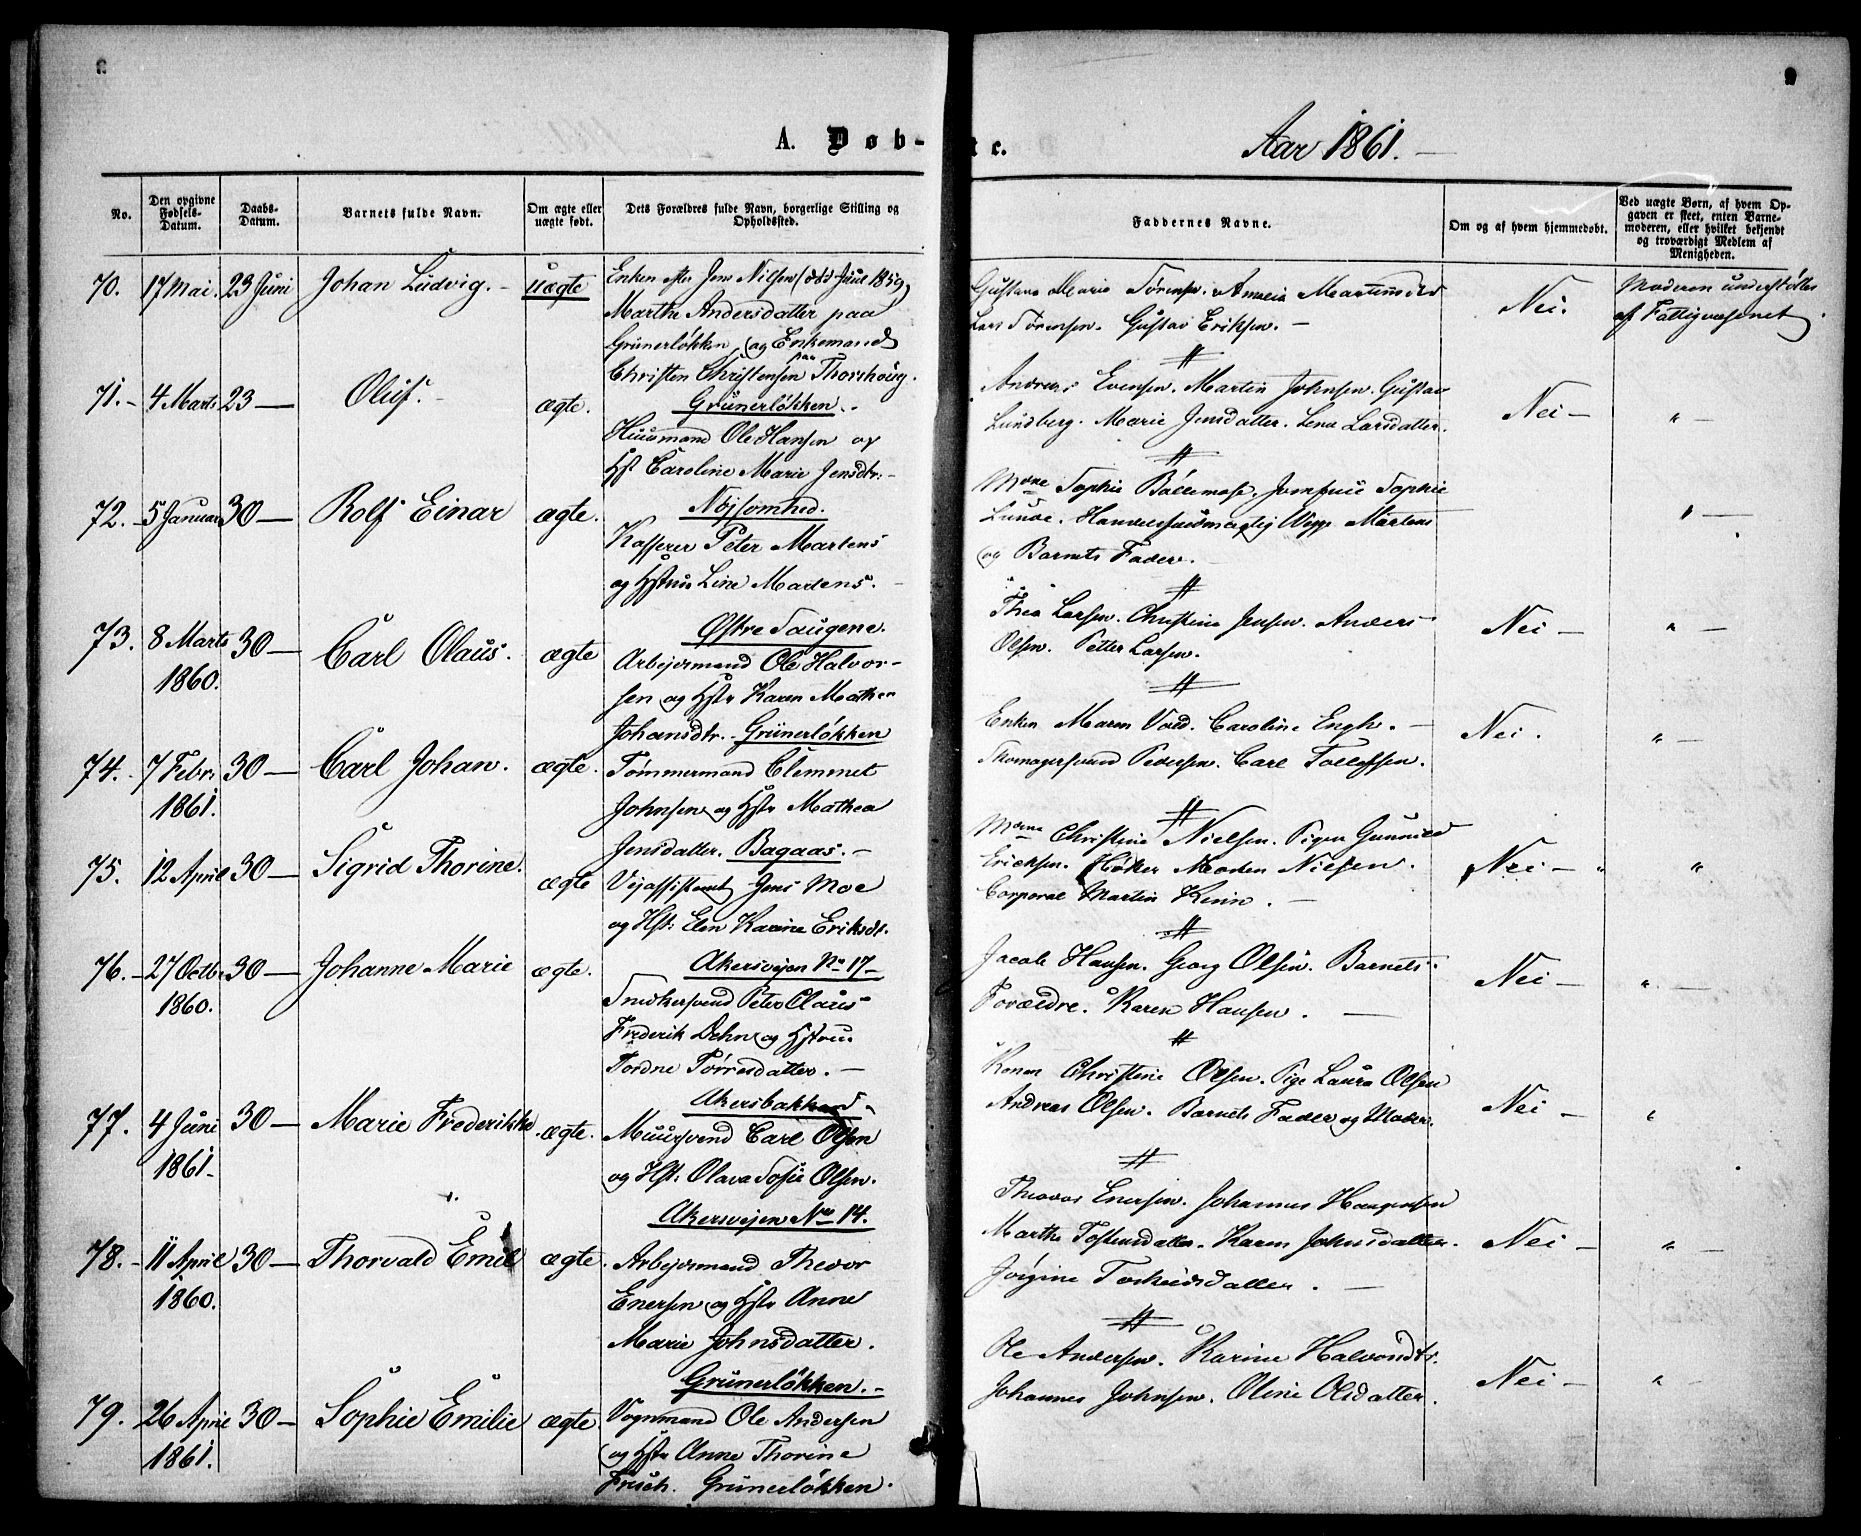 A. Døb-
te.
Aar 1861.
No.
Den opgivne Fødsels-Datum.
Daabs-Datum.
Barnets fulde Navn.
Om ægte eller uægte født.
Dets Forældres fulde Navn, borgerlige Stilling og Opholdssted.
Faddernes Navne.
Om og af hvem hjemmedøbt.
Ved uægte Børn, af hvem Opgaven er skeet, enten Barnemoderen, eller hvilket bekjendt og troværdigt Medlem af Menigheden.
70. 17 Mai. 23 Juni Johan Ludvig. - uægte
Enken efter Jens Nilsen
Marthe Andersdatter paa
Grünerløkken, og Enkemand
Christen Christensen paa Thorshoug.
Gustava Marie Sørensen. Amalia
Lars Sørensen. Gustav Eriksen. -
Nei.
Moderen understøttes
af Fattigvæsenet.
71. - 4 Marts 23 - Oluf. - ægte.
Grünerløkken. -
Huusmand Ole Hansen og
Hst Caroline Marie Jensdtr: -
Andreas Evensen. Martin Johnsen. Gustav
Lundberg. Marie Jensdatter. Lena Larsdatter.
Nei - " -
72. - 5 Januar 30 - Rolf Einar ægte.
Nøjsomhed.
Kasserer Peter Martens
og Hstru Line Martens. -
Mdme Sophie Jomfrue Sophie
Lunde. Martens
og Barnets Fader.
" -
73. 8 Marts 1860. 30 - Carl Olaus. ægte
Østre Saugene.
Arbejdsmand Ole Halvor-
sen og Hstr Karen Mathea
Johansdtr. -
Thea Larsen. Christine Jensen. Anders
Olsen. Petter Larsen.
Nei - " -
74. - 7 Febr. 1861. 30 - Carl Johan. ægte.
Grünerløkken
Tømmermand Clemmet
Johnsen og Hstr Mathea
Jensdatter.
Enken Maren Vold. Caroline Engh. -
Skomagersvend Pedersen. Carl Tollefsen.
Nei. " -
75. 12 April 30 - Sigrid Thorine. ægte
Bagaas. -
Vejassistent Jens Moe
og Hst: Elen Karine Eriksdt.
Mdme Christine Nielsen. Pigen Gunnild
Ericksen. Høker Nielsen.
Corporal Martin -
Nei - " "
76. - 27 Octbr 1860. 30 - Johanne Marie ægte.
Akersvejen No 17 -
Snedkersvend Peter Claus
Frederik Dehn og Hstrue
Tordne Tørresdatter. -
Jacob Hansen. Georg Olsen. Barnets
Forældre. Karen Hansen. -
Nei - " -
77. 4 Juni 1861. 30 - Marie Frederikke ægte.
Akersbakken
Muursvend Carl Olsen
og Hst: Olava Sofie Olsen.
Konen Christine Olsen. Pige Laura Olsen
Andreas Olsen. Barnets Fader og Moder.
Nei - "
78. - 11 April 1860. 30 - Thorvald Emil ægte.
Akersvejen No 14.
Arbejdsmand Theodor
Enersen og Hstr Anne
Marie Johnsdatter.
Enersen. Johannes
Marthe Karen Johnsdatter.
Jørgine -
Nei - " -
79. 26 April 1861. 30 - Sophie Emilie ægte.
Grünerløkken. -
Vognmand Ole Andersen
og Hstr Anne Thorine
Frisch. Grünerløkken.
Ole Andersen. Karine Halvorsdtr.
Johannes Johnsen. Oline Olsdatter.
Nei - " -